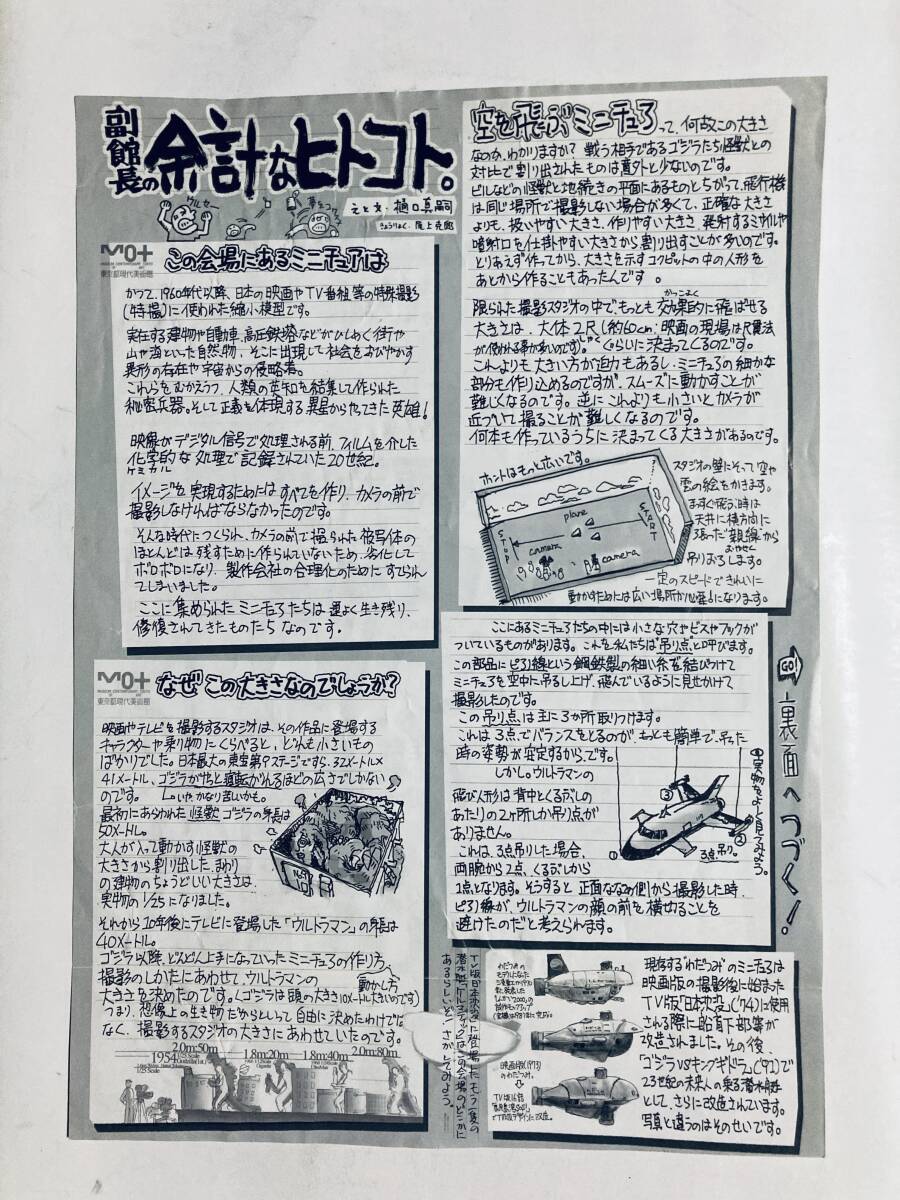 副館長の余計なヒトコト。
ウルセー
えと文、樋口真嗣
MOT+
東京都現代美術館
この会場にあるミニチュアは
かつて、1960年代以降、日本の映画やTV番組等の特殊撮影
(特撮)に使われた縮小模型です。
実在する建物や自動車、高圧鉄塔などがひしめく街や
山や海といった自然物、そこに出現して社会をおびやかす
異形の存在や宇宙からの侵略者。
これらをむかえうつ、人類の英知を結集して作られた
秘密兵器。そして正義を体現する異星からやってきた英雄!
映像がデジタル信号で処理される前、フィルムを介した
化学的な処理で記録されていた20世紀。
ケミカル
イメージを実現するためにはすべてを作り、カメラの前で
撮影しなければならなかったのです。
そんな時代につくられ、カメラの前で撮られた被写体の
ほとんどは残すために作られていないため、劣化して
ボロボロになり、製作会社の合理化のためにすてられ
てしまいました。
ここに集められたミニチュアたちは運よく生き残り、
修復されてきたものたちなのです。
MOT+
東京都現代美術館
なぜこの大きさなのでしょうか?
映画やテレビを撮影するスタジオは、その作品に登場する
キャラクターや乗り物にくらべると、どれも小さいもの
ばかりでした。日本最大の東宝第9ステージですら、32メートル×
41メートル、ゴジラがやっと寝転がれるほどの広さでしかない
のです。 いや、かなり苦しいかも。
最初にあらわれた怪獣ゴジラの身長は
50メートル。
大人が入って動かす怪獣の
大きさから割り出した、まわり
の建物のちょうどいい大きさは、
実物の1/25になりました。
それから12年後にテレビに登場した「ウルトラマン」の身長は
40メートル。
ゴジラ以降、どんどん上手になっていったミニチュアの作り方、
動かし方
撮影のしかたにあわせて、ウルトラマンの
大きさを決めたのです。(ゴジラは頭の大きさ10メートル大きいのです)
つまり、想像上の生き物だからといって自由に決めたわけでは
なく、撮影するスタジオの大きさにあわせていたのです。
2.0m:50m
1954
1/25 Scale
1.8m:20m
1.8m:40m
2.0m:80m
空を飛ぶミニチュアって、何故この大きさ
なのか、わかりますか? 戦う相手であるゴジラたち怪獣との
対比で割り出されたものは意外と少ないのです。
ビルなどの怪獣と地続きの平面にあるものとちがって、飛行機
は同じ場所で撮影しない場合が多くて、正確な大きさ
よりも、扱いやすい大きさ、作りやすい大きさ、発射するミサイルや
噴射口を仕掛けやすい大きさから、割り出すことが多いのです。
とりあえず作ってから、大きさを示すコクピットの中の人形を
あとから作ることもあったんです。
かっこよく
限られた撮影スタジオの中で、もっとも効果的に飛ばせる
大きさは、大体2尺(約60cm:映画の現場は尺貫法
が使われる事が多いのです。)ぐらいに決まってくるのです。
これよりも大きい方が迫力もあるし、ミニチュアの細かな
部分も作り込めるのですが、スムーズに動かすことが
難しくなるのです。逆にこれよりも小さいと、カメラが
近づいて撮ることが難しくなるのです。
何本も作っているうちに決まってくる大きさがあるのです。
ホントはもっと広いです。
plane
START
STOP
camera
camera
スタジオの壁にそって空や
雲の絵をかきます。
まっすぐ飛ぶ時は
天井に横方向に
張った"親線"から
おやせん
吊りおろします。
一定のスピードできれいに
動かすためには広い場所が必要になります。
ここにあるミニチュアたちの中には小さな穴やビスやフックが
ついているものがあります。これを私たちは"吊り点"と呼びます。
この部品にピアノ線という鋼鉄製の細い糸を結びつけて
ミニチュアを空中に吊るし上げ、飛んでいるように見せかけて
撮影したのです。
この吊り点は主に3か所取りつけます。
これは3点でバランスをとるのが、もっとも簡単で、吊った
時の姿勢が安定するから、です。
しかし、ウルトラマンの
飛び人形は背中とくるぶしの
あたりの2ヶ所しか吊り点が
ありません。
これは、3点吊りした場合、
両腕から2点、くるぶしから
1点となります。そうすると正面ななめ側から撮影した時、
ピアノ線が、ウルトラマンの顔の前を横切ることを
避けたのだと考えられます。
①
②
③
3点吊り。
実物をよーく見てみよう。
GO! 裏面へつづく!
映画版(1973)
のわだつみ。
現存する"わだつみ"のミニチュアは
映画版の撮影後に始まった
TV版「日本沈没」('74)に使用
される際に船首下部等が
改造されました。その後、
「ゴジラVSキングギドラ」('91)で
23世紀の未来人の乗る潜水艇
として、さらに改造されています。
写真と違うのはそのせいです。